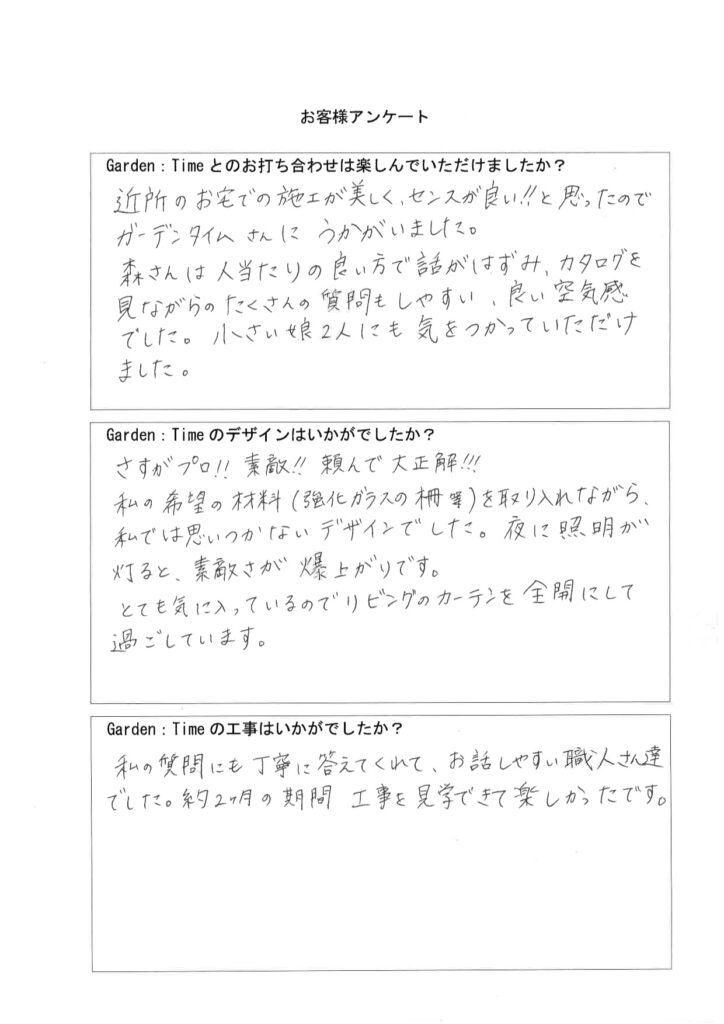 お客様アンケート
Garden：Timeとのお打ち合わせは楽しんでいただけましたか？
近所のお宅での施工が美しく、センスが良い!!と思ったので
ガーデンタイムさんに うかがいました。
森さんは人当たりの良い方で話がはずみ、カタログを
見ながらのたくさんの質問もしやすい、良い空気感
でした。小さい娘2人にも気をつかっていただけ
ました。
Garden：Timeのデザインはいかがでしたか？
さすがプロ!! 素敵!! 頼んで大正解!!!
私の希望の材料(強化ガラスの柵等)を取り入れながら、
私では思いつかないデザインでした。夜に照明が
灯ると、素敵さが爆上がりです。
とても気に入っているのでリビングのカーテンを全開にして
過ごしています。
Garden：Timeの工事はいかがでしたか？
私の質問にも丁寧に答えてくれて、お話しやすい職人さん達
でした。約2ヶ月の期間 工事を見学できて楽しかったです。